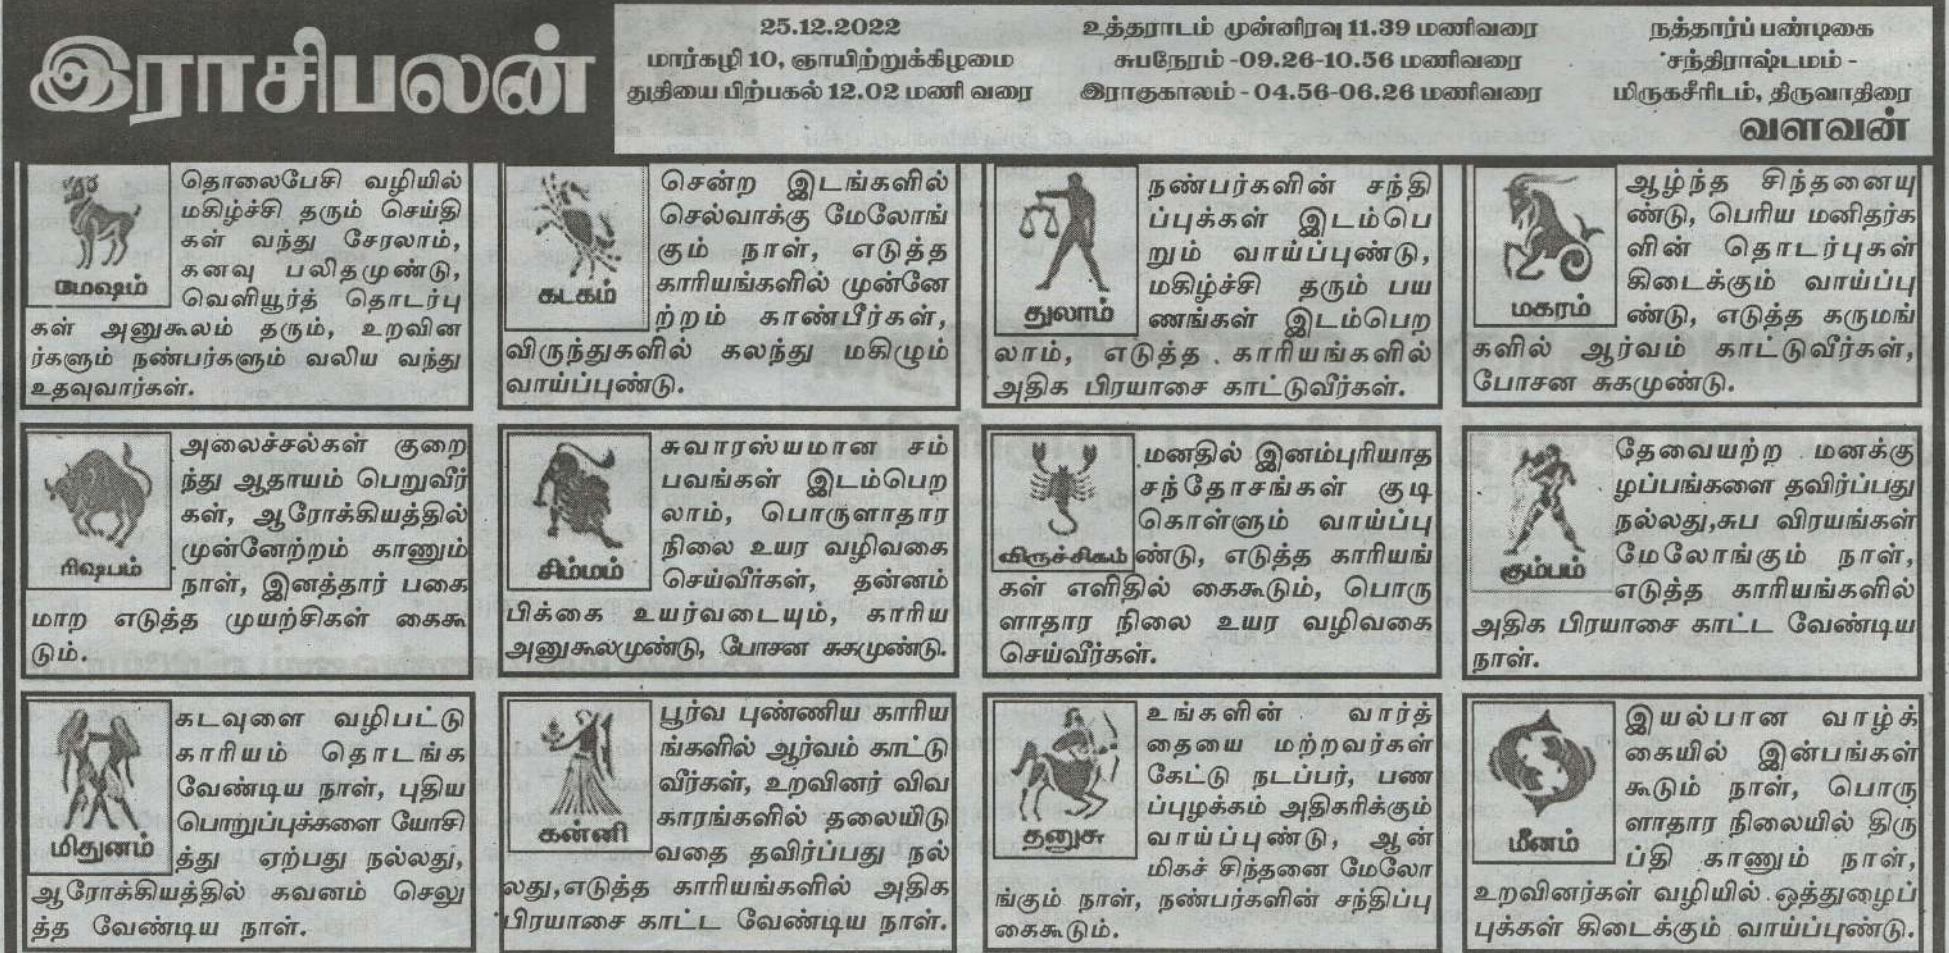 இராசிபலன்
25.12.2022
மார்கழி 10, ஞாயிற்றுக்கிழமை
துதியை பிற்பகல் 12.02 மணி வரை
உத்தராடம் முன்னிரவு 11.39 மணிவரை
சுபநேரம் -09.26-10.56 மணிவரை
இராகுகாலம் - 04.56-06.26 மணிவரை
நத்தார்ப் பண்டிகை
சந்திராஷ்டமம் -
மிருகசீரிடம், திருவாதிரை
வளவன்
மேஷம்
தொலைபேசி வழியில்
மகிழ்ச்சி தரும் செய்தி
கள் வந்து சேரலாம்,
கனவு பலிதமுண்டு,
வெளியூர்த் தொடர்பு
கள் அனுகூலம் தரும், உறவின
ர்களும் நண்பர்களும் வலிய வந்து
உதவுவார்கள்.
ரிஷபம்
அலைச்சல்கள் குறை
ந்து ஆதாயம் பெறுவீர்
கள், ஆரோக்கியத்தில்
முன்னேற்றம் காணும்
நாள், இனத்தார் பகை
மாற எடுத்த முயற்சிகள் கைகூ
டும்.
மிதுனம்
கடவுளை வழிபட்டு
காரியம் தொடங்க
வேண்டிய நாள், புதிய
பொறுப்புக்களை யோசி
த்து ஏற்பது நல்லது,
ஆரோக்கியத்தில் கவனம் செலு
த்த வேண்டிய நாள்.
கடகம்
சென்ற இடங்களில்
செல்வாக்கு மேலோங்
கும் நாள், எடுத்த
காரியங்களில் முன்னே
ற்றம் காண்பீர்கள்,
விருந்துகளில் கலந்து மகிழும்
வாய்ப்புண்டு.
சிம்மம்
சுவாரஸ்யமான சம்
பவங்கள் இடம்பெற
லாம், பொருளாதார
நிலை உயர வழிவகை
செய்வீர்கள், தன்னம்
பிக்கை உயர்வடையும், காரிய
அனுகூலமுண்டு, போசன சுகமுண்டு.
கன்னி
பூர்வ புண்ணிய காரிய
ங்களில் ஆர்வம் காட்டு
வீர்கள், உறவினர் விவ
காரங்களில் தலையிடு
வதை தவிர்ப்பது நல்
லது,எடுத்த காரியங்களில் அதிக
பிரயாசை காட்ட வேண்டிய நாள்.
துலாம்
நண்பர்களின் சந்தி
ப்புக்கள் இடம்பெ
றும் வாய்ப்புண்டு,
மகிழ்ச்சி தரும் பய
ணங்கள் இடம்பெற
லாம், எடுத்த காரியங்களில்
அதிக பிரயாசை காட்டுவீர்கள்.
விருச்சிகம்
மனதில் இனம்புரியாத
சந்தோசங்கள் குடி
கொள்ளும் வாய்ப்பு
ண்டு, எடுத்த காரியங்
கள் எளிதில் கைகூடும், பொரு
ளாதார நிலை உயர வழிவகை
செய்வீர்கள்.
தனுசு
உங்களின் வார்த்
தையை மற்றவர்கள்
கேட்டு நடப்பர், பண
ப்புழக்கம் அதிகரிக்கும்
வாய்ப்புண்டு, ஆன்
மிகச் சிந்தனை மேலோ
ங்கும் நாள், நண்பர்களின் சந்திப்பு
கைகூடும்.
மகரம்
ஆழ்ந்த சிந்தனையு
ண்டு, பெரிய மனிதர்க
ளின் தொடர்புகள்
கிடைக்கும் வாய்ப்பு
ண்டு, எடுத்த கருமங்
களில் ஆர்வம் காட்டுவீர்கள்,
போசன சுகமுண்டு.
கும்பம்
தேவையற்ற மனக்கு
ழப்பங்களை தவிர்ப்பது
நல்லது,சுப விரயங்கள்
மேலோங்கும் நாள்,
எடுத்த காரியங்களில்
அதிக பிரயாசை காட்ட வேண்டிய
நாள்.
மீனம்
இயல்பான வாழ்க்
கையில் இன்பங்கள்
கூடும் நாள், பொரு
ளாதார நிலையில் திரு
ப்தி காணும் நாள்,
உறவினர்கள் வழியில் ஒத்துழைப்
புக்கள் கிடைக்கும் வாய்ப்புண்டு.